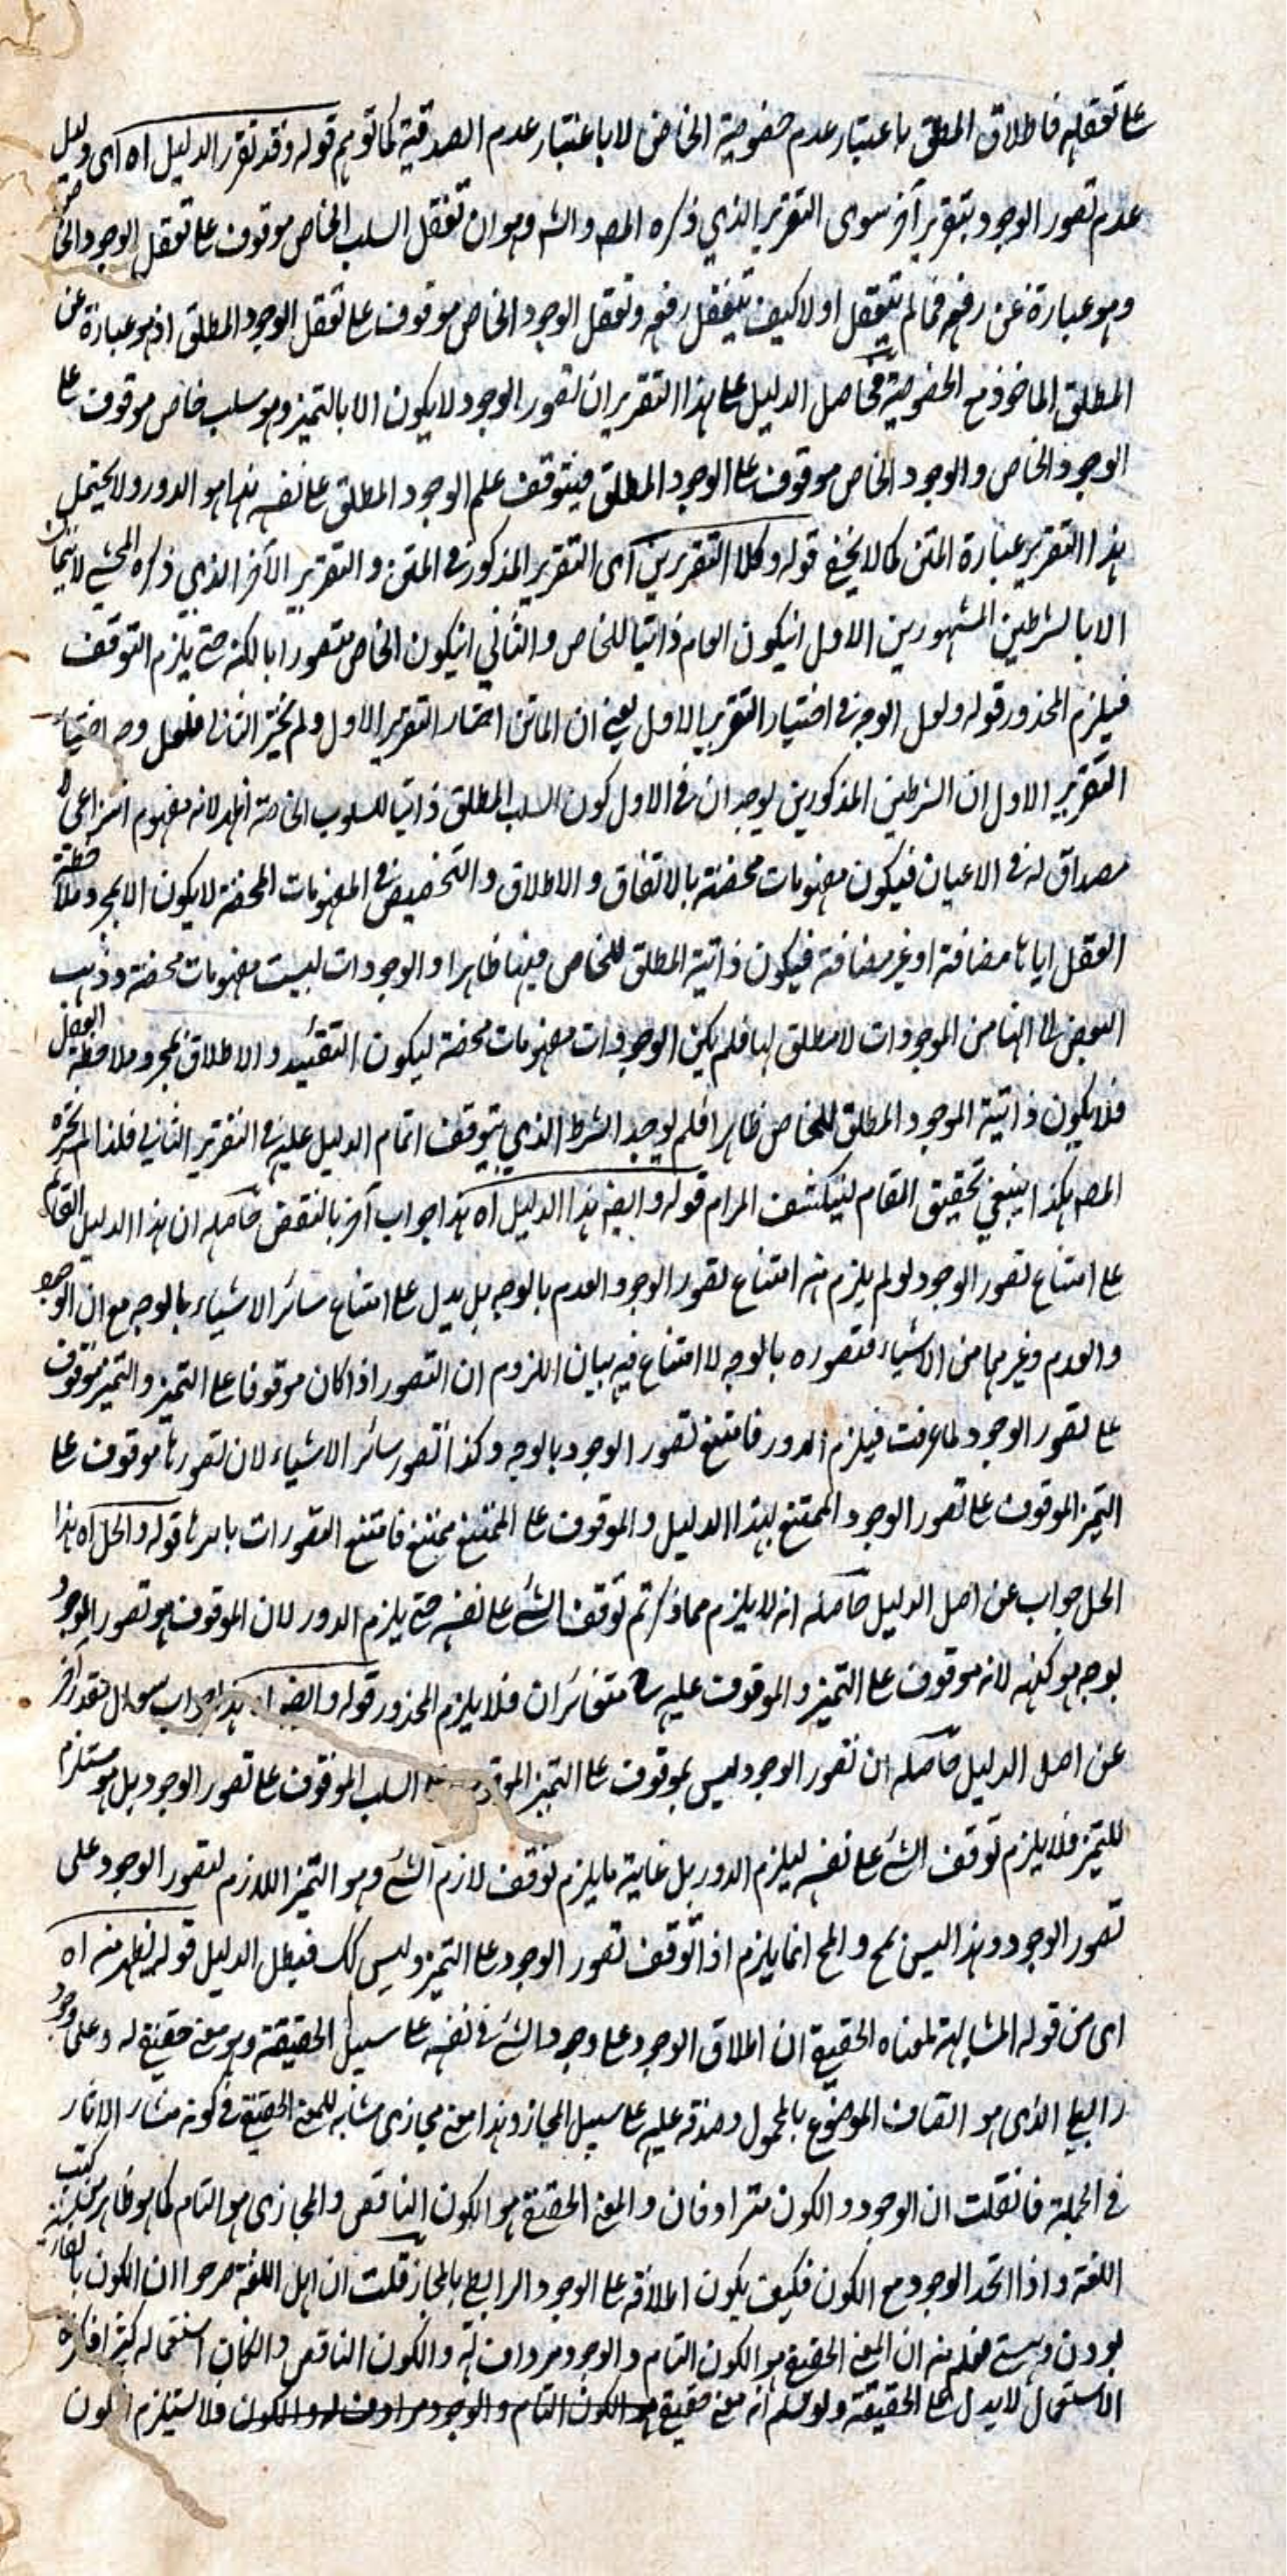 على تعقله فاطلاق المطلق باعتبار عدم خصوصية الخاص لا باعتبار عدم الصدقية كما توهم قوله وقد تقرر الدليل اه اى دليل
عدم تصور الوجود بتقرير آخر سوى التقرير الذي ذكره المصـ والشـ وهو ان تعقل السلب الخاص موقوف على تعقل الوجود الخاص
وهو عبارة عن رفعه فما لم يتعقل اولا كيف يتعقل رفعه وتعقل الوجود الخاص موقوف على تعقل الوجود المطلق اذ هو عبارة عن
المطلق الماخوذ مع الخصوصية فحاصل الدليل على هذا التقرير ان تصور الوجود لا يكون الا بالتميز وهو سلب خاص موقوف على
الوجود الخاص والوجود الخاص موقوف على الوجود المطلق فيتوقف علم الوجود المطلق على نفسه هذا هو الدور ولا يحتمل
هذا التقرير عبارة المتن كما لا يخفى قوله وكلا التقريرين اى التقرير المذكور فى المتن والتقرير الآخر الذي ذكره المحشى لا يتمان
الا بالشرطين المشهورين الاول انيكون العام ذاتيا للخاص والثاني انيكون الخاص متصورا بالكنه حتى يلزم التوقف
فيلزم المحذور قوله ولعل الوجه فى اختيار التقرير الاول يعنى ان الماتن اختار التقرير الاول ولم يختر الثانى فلعل وجه اختيار
التقرير الاول ان الشرطين المذكورين يوجدان فى الاول كون السلب المطلق ذاتيا للسلوب الخاصة اظهر لانه مفهوم انتزاعى لا
مصداق له فى الاعيان فيكون مفهومات محضة بالاتفاق والاطلاق والتخصيص فى المفهومات المحضة لا يكون الا بمجرد ملاحظة
العقل اياها مضافة او غير مضافة فيكون ذاتية المطلق للخاص فيها ظاهرا والوجودات ليست مفهومات محضة وذهب
البعض الى انها من الموجودات لا مطلق لها فلم يكن الوجودات مفهومات محضة ليكون التقئيد والاطلاق بمجرد ملاحظة العقل
فلا يكون ذاتية الموجود المطلق للخاص ظاهرا فلم يوجد الشرط الذي يتوقف اتمام الدليل عليه فى التقرير الثانى فلذا لم يختره
المصـ هكذا ينبغي تحقيق المقام لينكشف المرام قوله وايضـ هذا الدليل اه هذا جواب آخر بالنقض حاصله ان هذا الدليل القائم
على امتناع تصور الوجود لو لم يلزم منه امتناع تصور الوجود والعدم بالوجه بل يدل على امتناع سائر الاشياء بالوجه مع ان الوجود
والعدم وغيرهما من الاشياء فتصوره بالوجه لا امتناع فيه بيان اللزوم ان التصور اذا كان موقوفا على التميز والتميز موقوف
على تصور الوجود لما عرفت فيلزم الدور فامتنع تصور الوجود بالوجه وكذا تصور سائر الاشياء لان تصورها موقوف على
التميز الموقوف على تصور الوجود الممتنع بهذا الدليل والموقوف على الممتنع ممتنع فامتنع التصورات باسرها قوله والحل اه هذا
الحل جواب عن اصل الدليل حاصله انه لا يلزم مما ذكرتم توقف الشئ على نفسه حتى يلزم الدور لان الموقوف هو تصور الوجود
بوجه هو كنهه لانه موقوف على التميز والموقوف عليه متغائران فلا يلزم المحذور قوله وايضـ هذا جواب سوال مقدر آخر
عن اصل الدليل حاصله ان تصور الوجود ليس بموقوف على التميز الموقوف على السلب الموقوف على تصور الوجود بل هو مستلزم
للتميز فلا يلزم توقف الشئ على نفسه ليلزم الدور بل غاية ما يلزم توقف لازم الشئ وهو التميز اللازم لتصور الوجود على
تصور الوجود وهذا ليس بمح والمح انما يلزم اذا توقف تصور الوجود على التميز وليس كك فبطل الدليل قوله يظهر منه اه
اى من قوله المشابهة لمعناه الحقيقى ان اطلاق الوجود على وجود الشئ فى نفسه على سبيل الحقيقة وهو معنى حقيقى له وعلى وجود
رابطى الذى هو اتصاف الموضوع بالمحمول وصدقه عليه على سبيل المجاز وهذا معنى مجازى مشابه للمعنى الحقيقى فى كونه منشاء الاثار
فى الجملة فانقلت ان الوجود والكون مترادفان والمعنى الحقيقى هو الكون الناقص والمجازى هو التام كما هو ظاهر من كتب
اللغة واذا اتحد الوجود مع الكون فكيف يكون اطلاقه على الوجود الرابطى بالمجاز قلت ان اهل اللغة صرحوا ان الكون بالفارسية
بودن وهستى فعلم منه ان المعنى الحقيقى هو الكون التام والوجود مرادف له والكون الناقص وان كان استعماله كثيرا فكثرة
الاستعمال لا يدل على الحقيقة ولو سلم انه معنى حقيقى هو الكون التام والوجود مرادف له والكون فلا يستلزم الكون